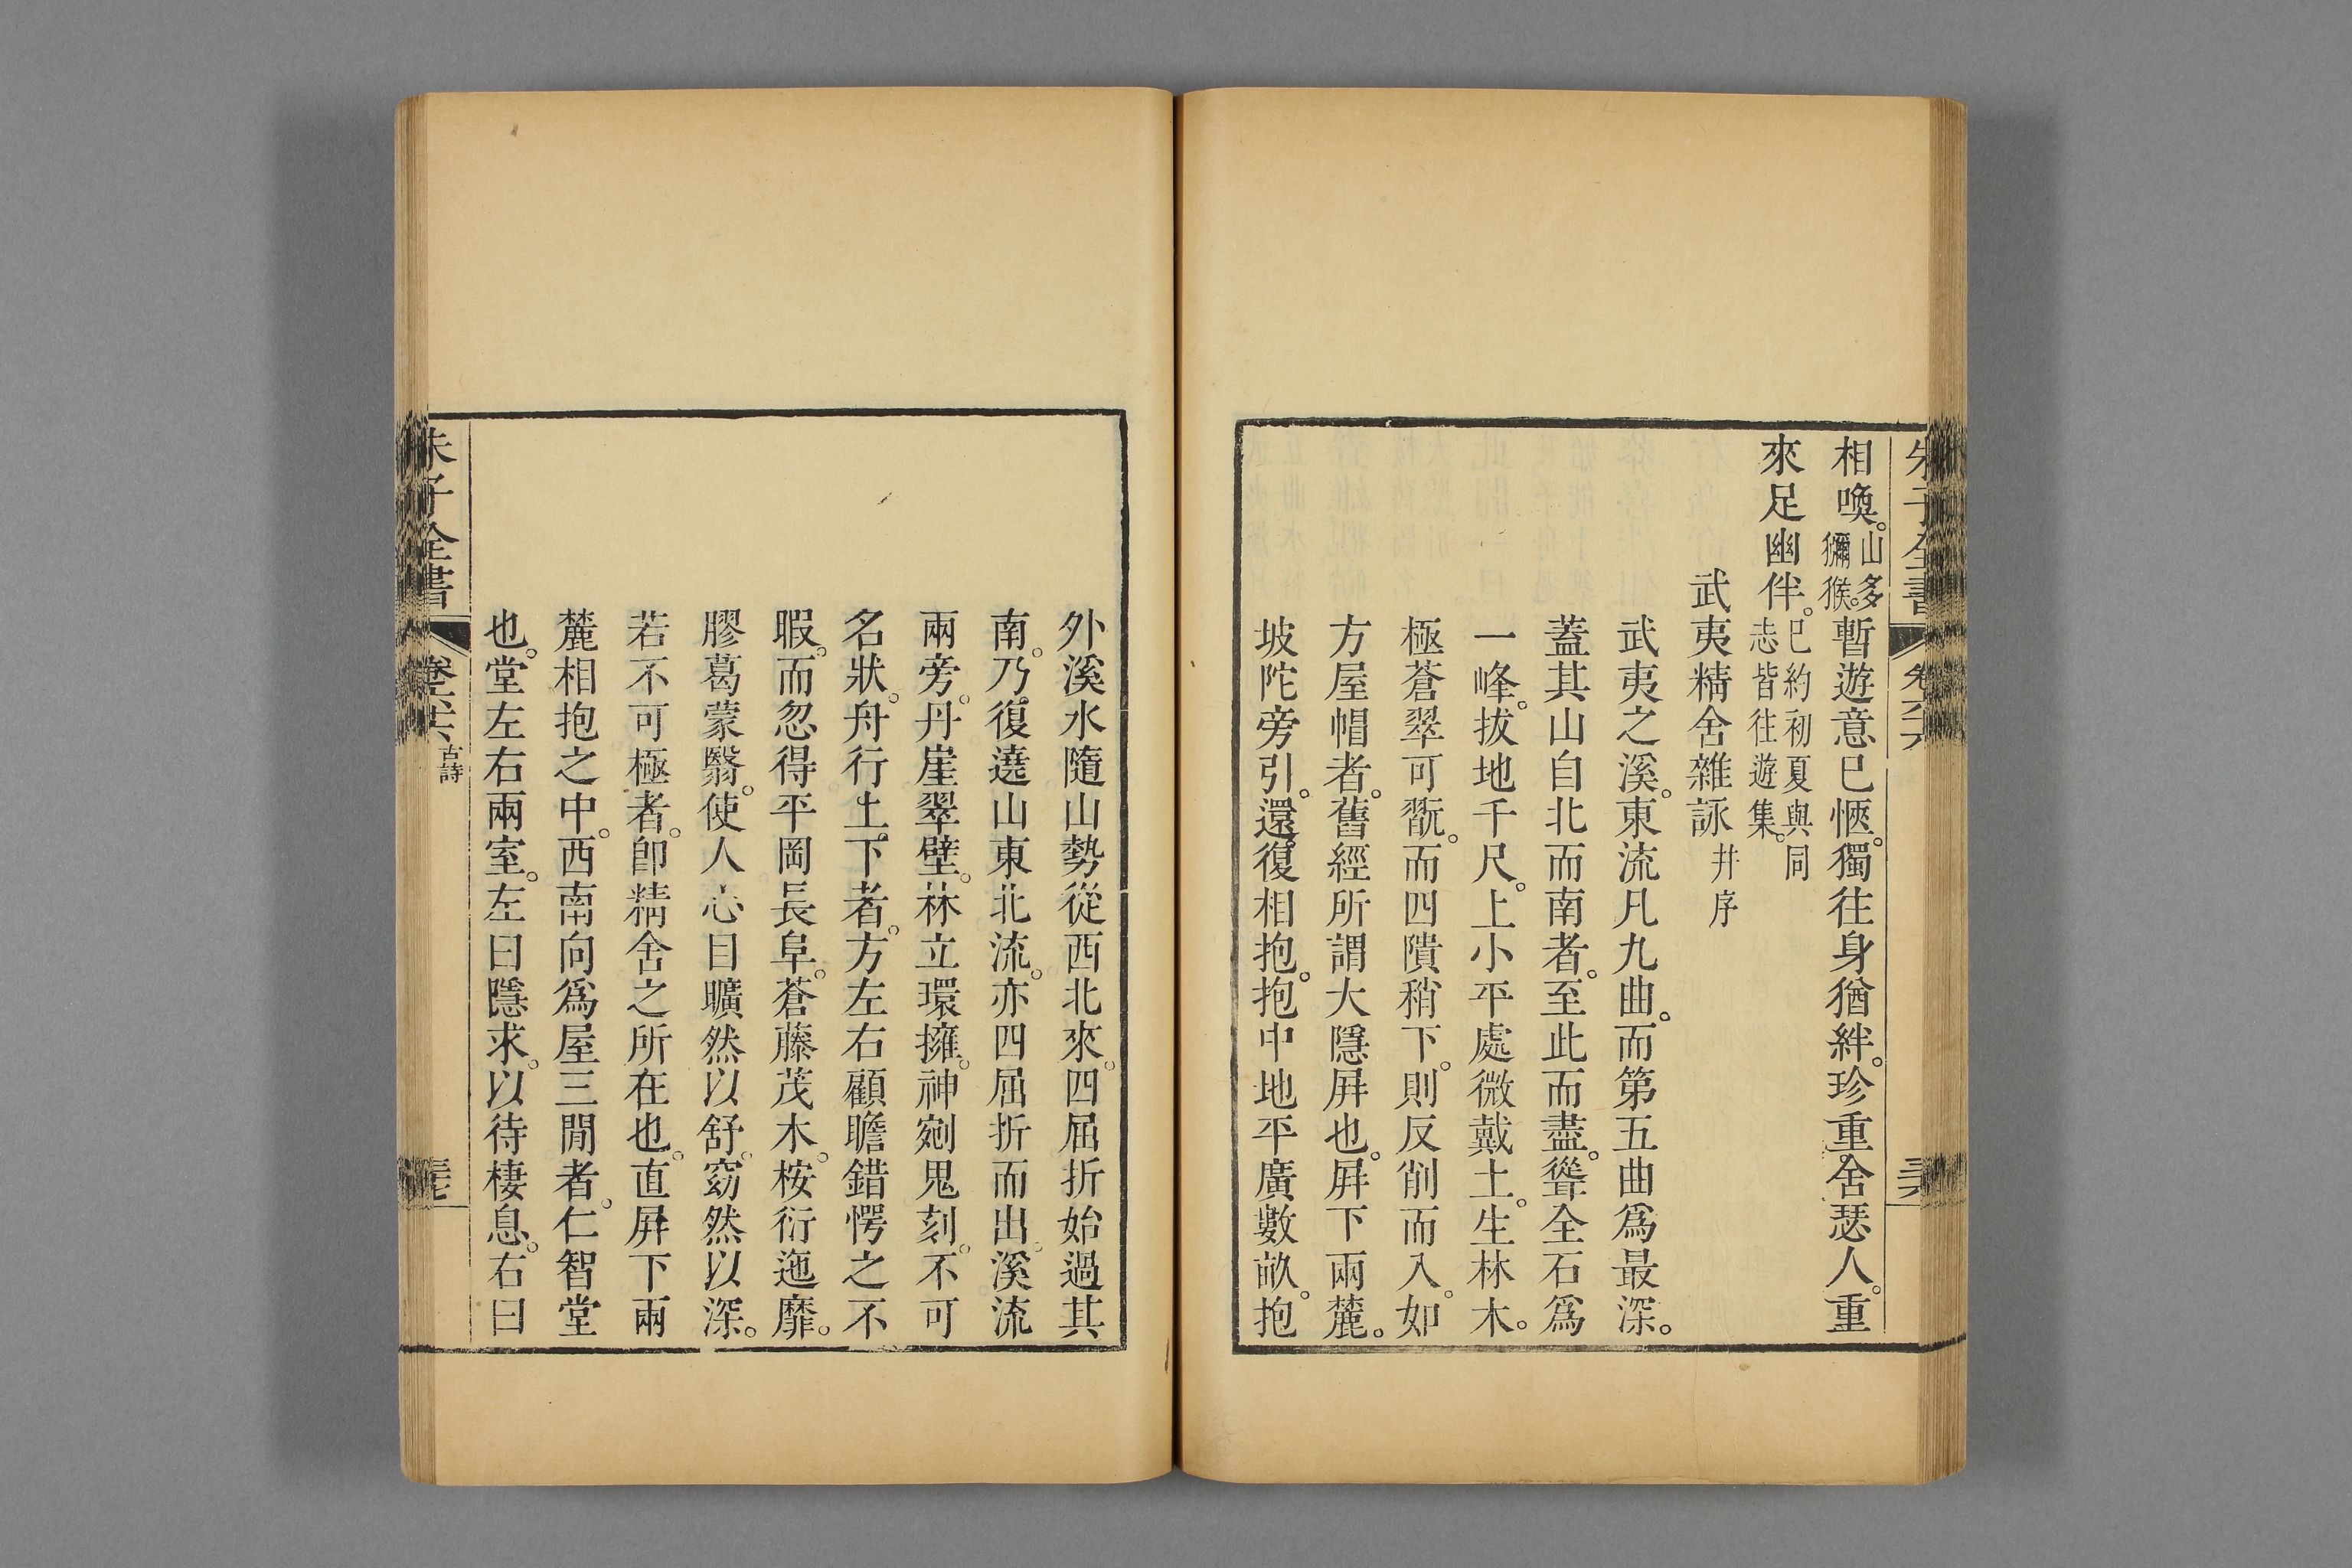 朱子全書 卷六十六
相喚。山多獼猴。暫遊意已愜。獨往身猶絆。珍重舍瑟人。重
來足幽伴。已約初夏與同志皆往遊集。
武夷精舍雜詠 幷序
武夷之溪。東流凡九曲。而第五曲爲最深。
蓋其山自北而南者。至此而盡。聳全石爲
一峰。拔地千尺。上小平處微戴土。生林木。
極蒼翠可翫。而四隤稍下。則反削而入。如
方屋帽者。舊經所謂大隱屛也。屛下兩麓。
坡陀旁引。還復相抱。抱中地平廣數畝。抱
外溪水隨山勢從西北來。四屈折始過其
南。乃復遶山東北流。亦四屈折而出。溪流
兩旁。丹崖翠壁。林立環擁。神剜鬼刻。不可
名狀。舟行上下者。方左右顧瞻錯愕之不
暇。而忽得平岡長阜。蒼藤茂木。桉衍迤靡。
膠葛蒙翳。使人心目曠然以舒。窈然以深。
若不可極者。卽精舍之所在也。直屛下兩
麓相抱之中。西南向爲屋三閒者。仁智堂
也。堂左右兩室。左曰隱求。以待棲息。右曰
朱子全書 卷六十六 古詩